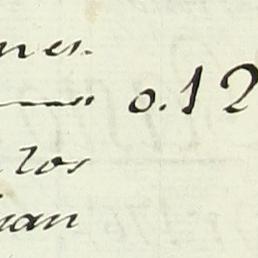 nes.
o.12
los
uan